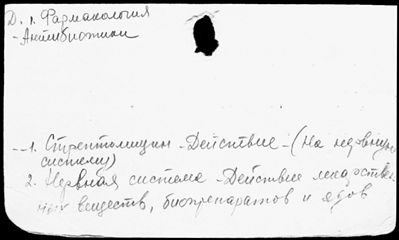 Д. 1. Фармакология
- Антибиотики
-- 1. Стрептомицин - Действие - (На нервную
систему)
2. Нервная система - Действие лекарствен
ных веществ, биопрепаратов и ядов